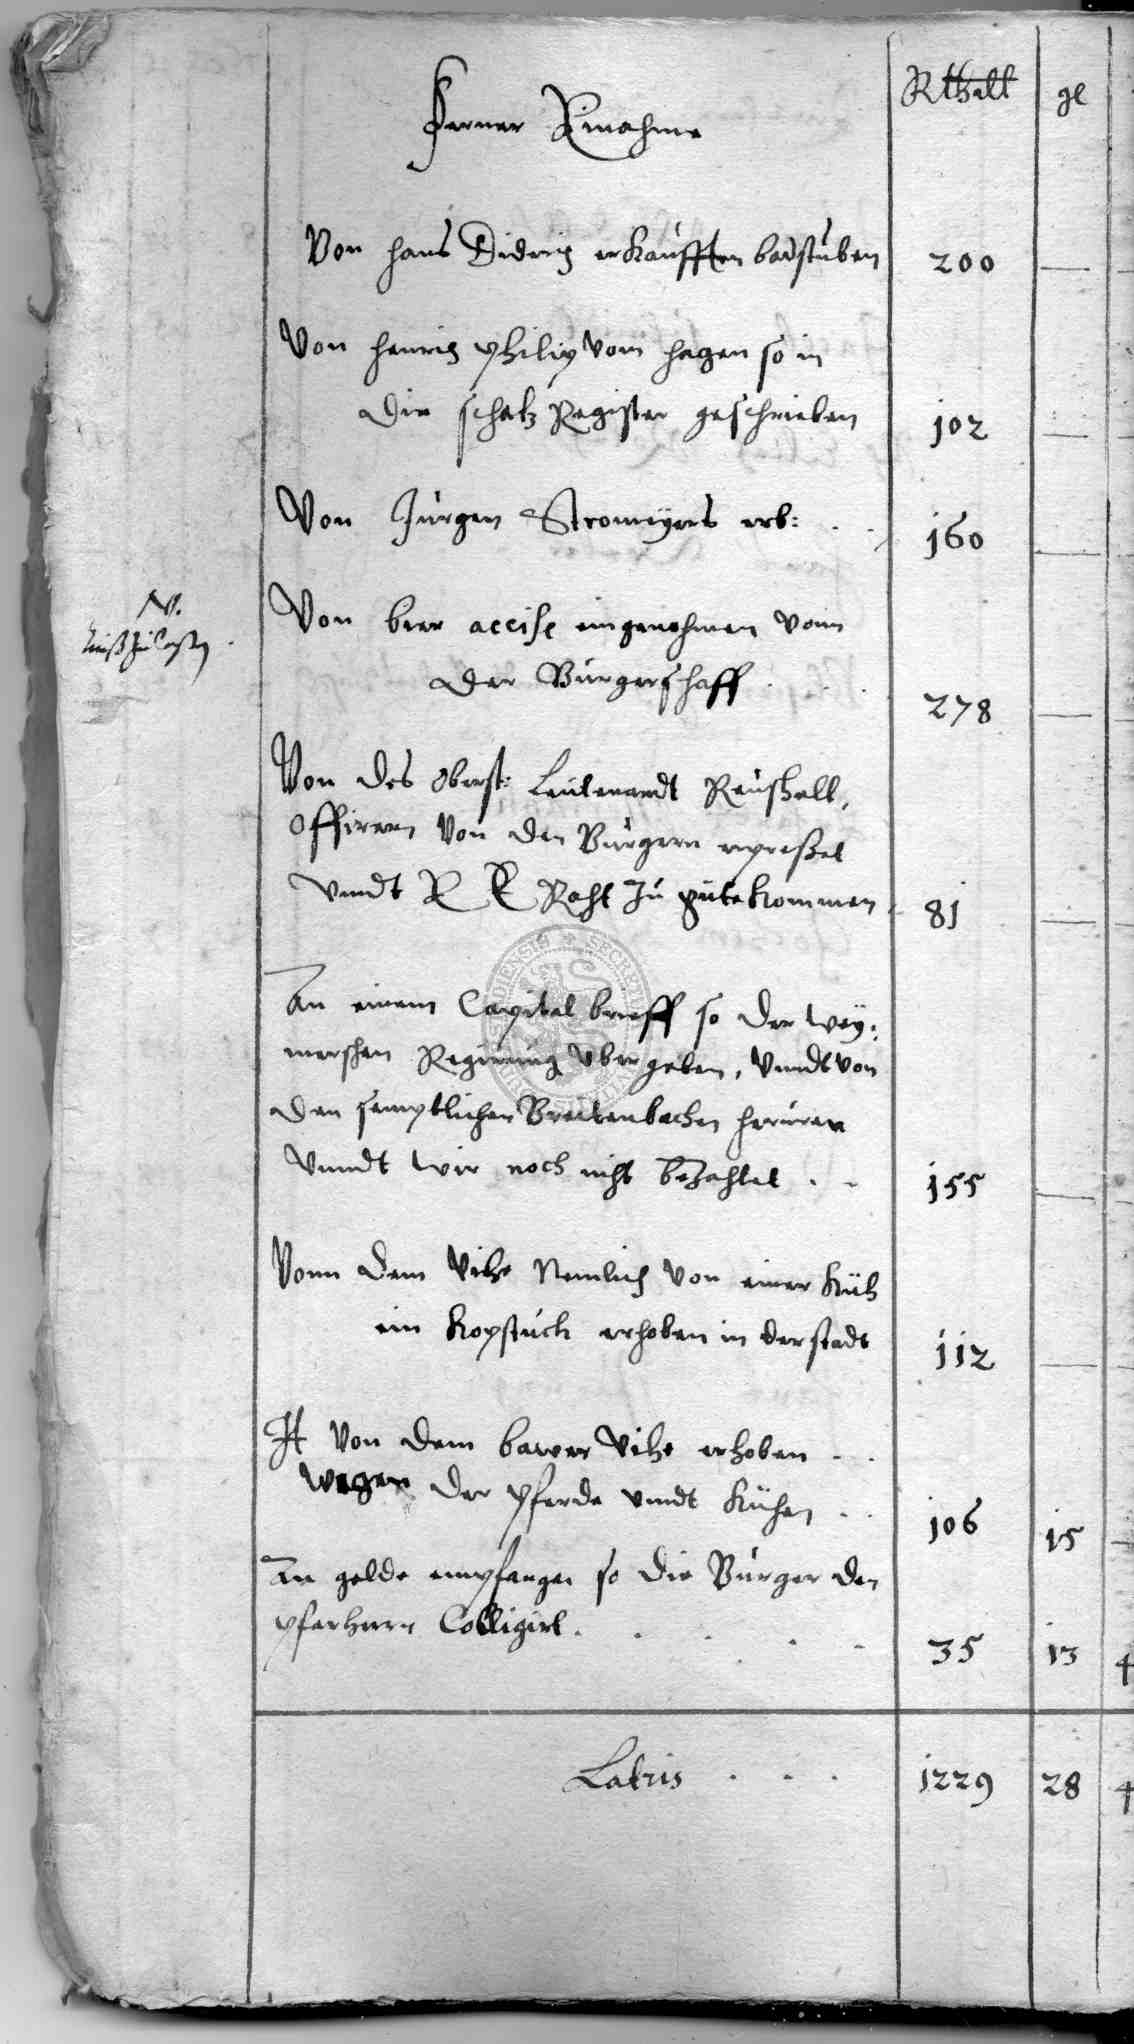 Ferner Einahme
RthalI gl
Von hans Didrich erkaufften badstuben 200 —
Von henrich philip vom hagen so in
die schatz Register geschrieben 102 —
Von Jürgen Stromeyers erb: 160 —
NB.
Von bier accise eingenohmen vonn
der Bürgerschaff 278 —
Von des Oberst: Leutenandt Reushall,
Officirern von den Bürgern erpresset
vnndt E E Raht zu gute kommen 81 —
An einem Capital brieff so der wey:
merschen Regirung vbergeben, vnndt von
den semptlichen Breitenbachen herruren
vnndt wir noch nicht bezahlet 155 —
Vonn dem Vihe Nemlich von einer Küh
ein Kopstuck erhoben in der stadt 112 —
It von dem bawer Vihe erhoben
wegen der pferde vnndt Kühen 106 15 —
An gelde empfangen so die Bürger den
pfarherrn Colligirt 35 13 4
Latris 1229 28 4